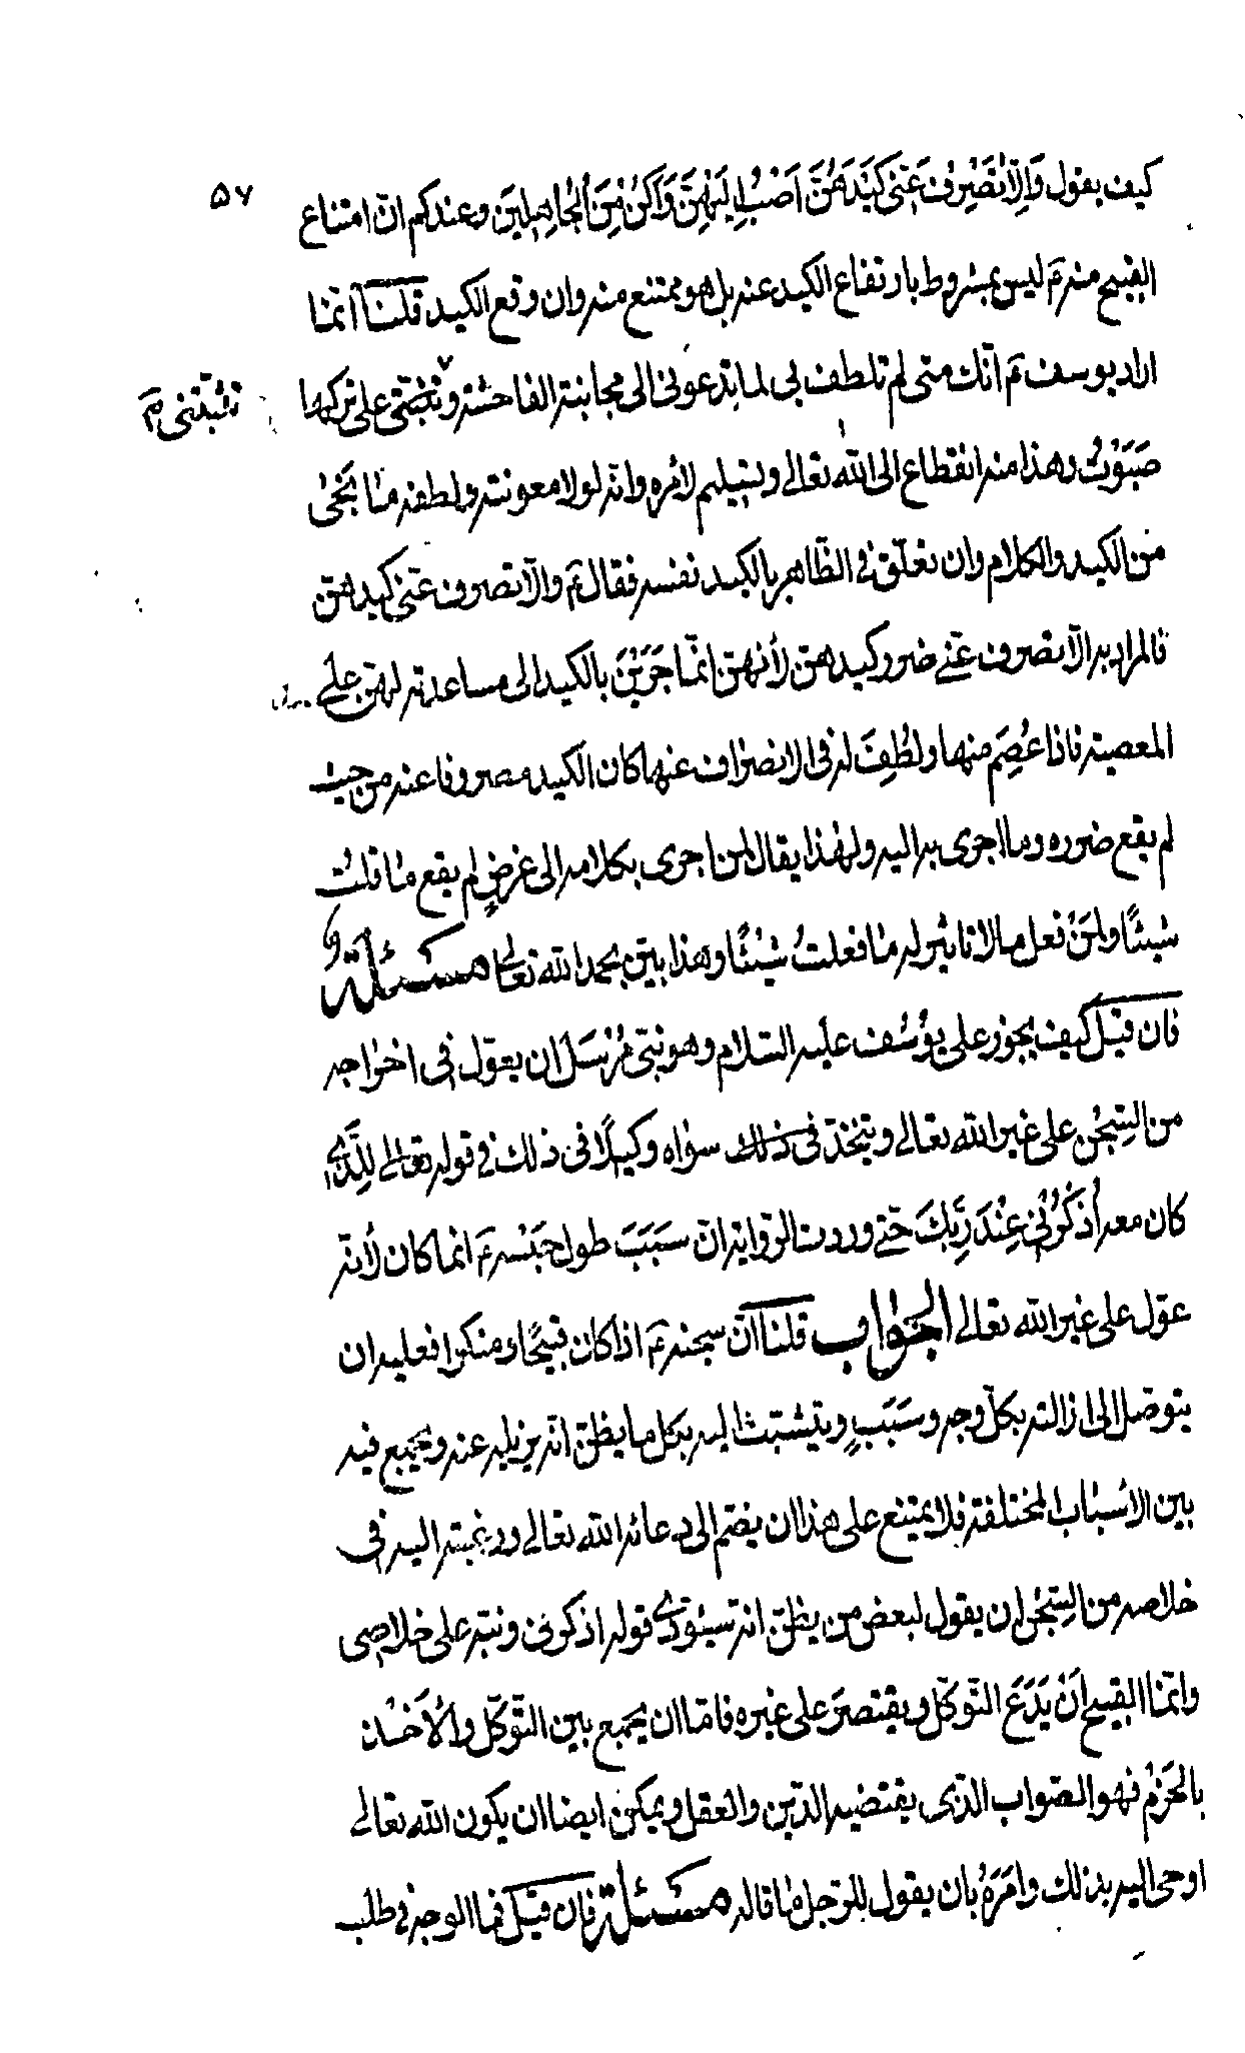 ٥٧
كيف يقول وَاِلّاٰ تَصْرِفْ عَنّى كَيْدَهُنَّ اَصْبُ اِلَيْهِنَّ وَاَكُنْ مِنَ الْجٰاهِلينَ وعندكم انّ امتناع
القبيح منه ع‍َ ليس بمشروط بارتفاع الكيد عنه بل هو ممتنع منه وان وقع الكيد قلنٰا انّمٰا
اراد يوسف ع‍َ انّك متى لم تلطف بى لما يدعونى الى مجانبة الفاحشة وتثبتنى على تركها
تثبّتنى م
صَبَوْتُ وهذا منه انقطاع الى اللّٰه تعالى وتسليم لأمره وانّه لولا معونته ولطفه مٰا نجىٰ
من الكيد والكلام وان تعلّق فى الظّاهر بالكيد نفسه فقال ع‍َ والّا تصرف عنّى كيدهنّ
فالمراد به الّا تصرف عنّى ضرر كيدهنّ لأنهنّ انّمٰا جَرَيْنَ بالكيد الى مساعدته لهنّ على
المعصية فاذا عُصِمَ منها ولُطِفَ له فى الانصرٰاف عنها كان الكيد مصروفا عنه من حيث
لم يقع ضرره وما اجرى به اليه ولهٰذا يقال لمن اجرى بكلامه الى غرضٍ لم يقع مٰا قلتَ
شيئًا ولمَنْ فعل ما لا تاثير له مٰا فعلتُ شيْئًا وهذا بيّن بحمد اللّه تعالى مسئلة
فان قيل كيف يجوز على يوُسُف عليه السّلام وهو نبىّ مُرْسَل ان يعوّل فى اخرٰاجه
من السِّجْن على غير اللّه تعالى ويتّخذ فى ذلك سوٰاه وكيلًا فى ذلك فى قوله تعالى للّذى
كان معه اُذْكُرْنى عِنْدَ رَبِّكَ حتّى وردت الرّواية انّ سَبَبَ طول حَبْسه ع‍َ انما كان لأنّه
عوّل على غير اللّه تعالى الجوٰاب قلنٰا انّ سجنه ع‍َ اذا كان قبيحًا ومنكرا فعليه ان
يتوصّل الى ازالته بكلّ وجه وسَبَبٍ ويتشبّث اليه بكلّ ما يظنّ انّه يزيله عنه ويجمع فيه
بين الأسبٰاب المختلفة فلا يمتنع على هذا ان يضمّ الى دعائه اللّه تعالى ورغبته اليه فى
خلاصه من السِّجْن ان يقول لبعض من يظنّ انّه سيُؤدّى قوله اذكرنى ونبّه على خلاصى
وانّمٰا القبيح اَنْ يَدَعَ التّوكّل ويقتصَرَ على غيره فامّا ان يجمع بين التّوكّل والْأَخْذ
بالحَزْم فهو الصّواب الذّى يقتضيه الدّين والعقل ويمكن ايضا ان يكون اللّه تعالى
اوحى اليه بذلك وامَرَهُ بان يقول للرّجل مٰا قاله مسئلة فان قيل فما الوجه فى طلب